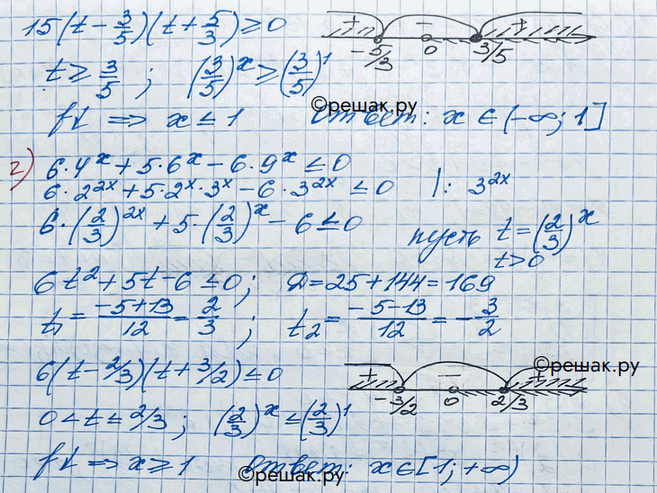 15(t - 3/5)(t + 5/3) ≥ 0 + − + -5/3 0 3/5
t ≥ 3/5 ; (3/5)^x ≥ (3/5)^1
©решак.ру
f↓ ⇒ x ≤ 1 Ответ: x ∈ (-∞; 1]
г) 6·4^x + 5·6^x - 6·9^x ≤ 0
6·2^2x + 5·2^x·3^x - 6·3^2x ≤ 0 |: 3^2x
6·(2/3)^2x + 5·(2/3)^x - 6 ≤ 0 пусть t = (2/3)^x
t>0
6t² + 5t - 6 ≤ 0; D = 25 + 144 = 169
t₁ = (-5+13)/12 = 2/3 ; t₂ = (-5-13)/12 = -3/2
6(t - 2/3)(t + 3/2) ≤ 0 + − + -3/2 0 2/3
©решак.ру
0 < t ≤ 2/3 ; (2/3)^x ≤ (2/3)^1
f↓ ⇒ x ≥ 1 Ответ: x ∈ [1; +∞)
©решак.ру